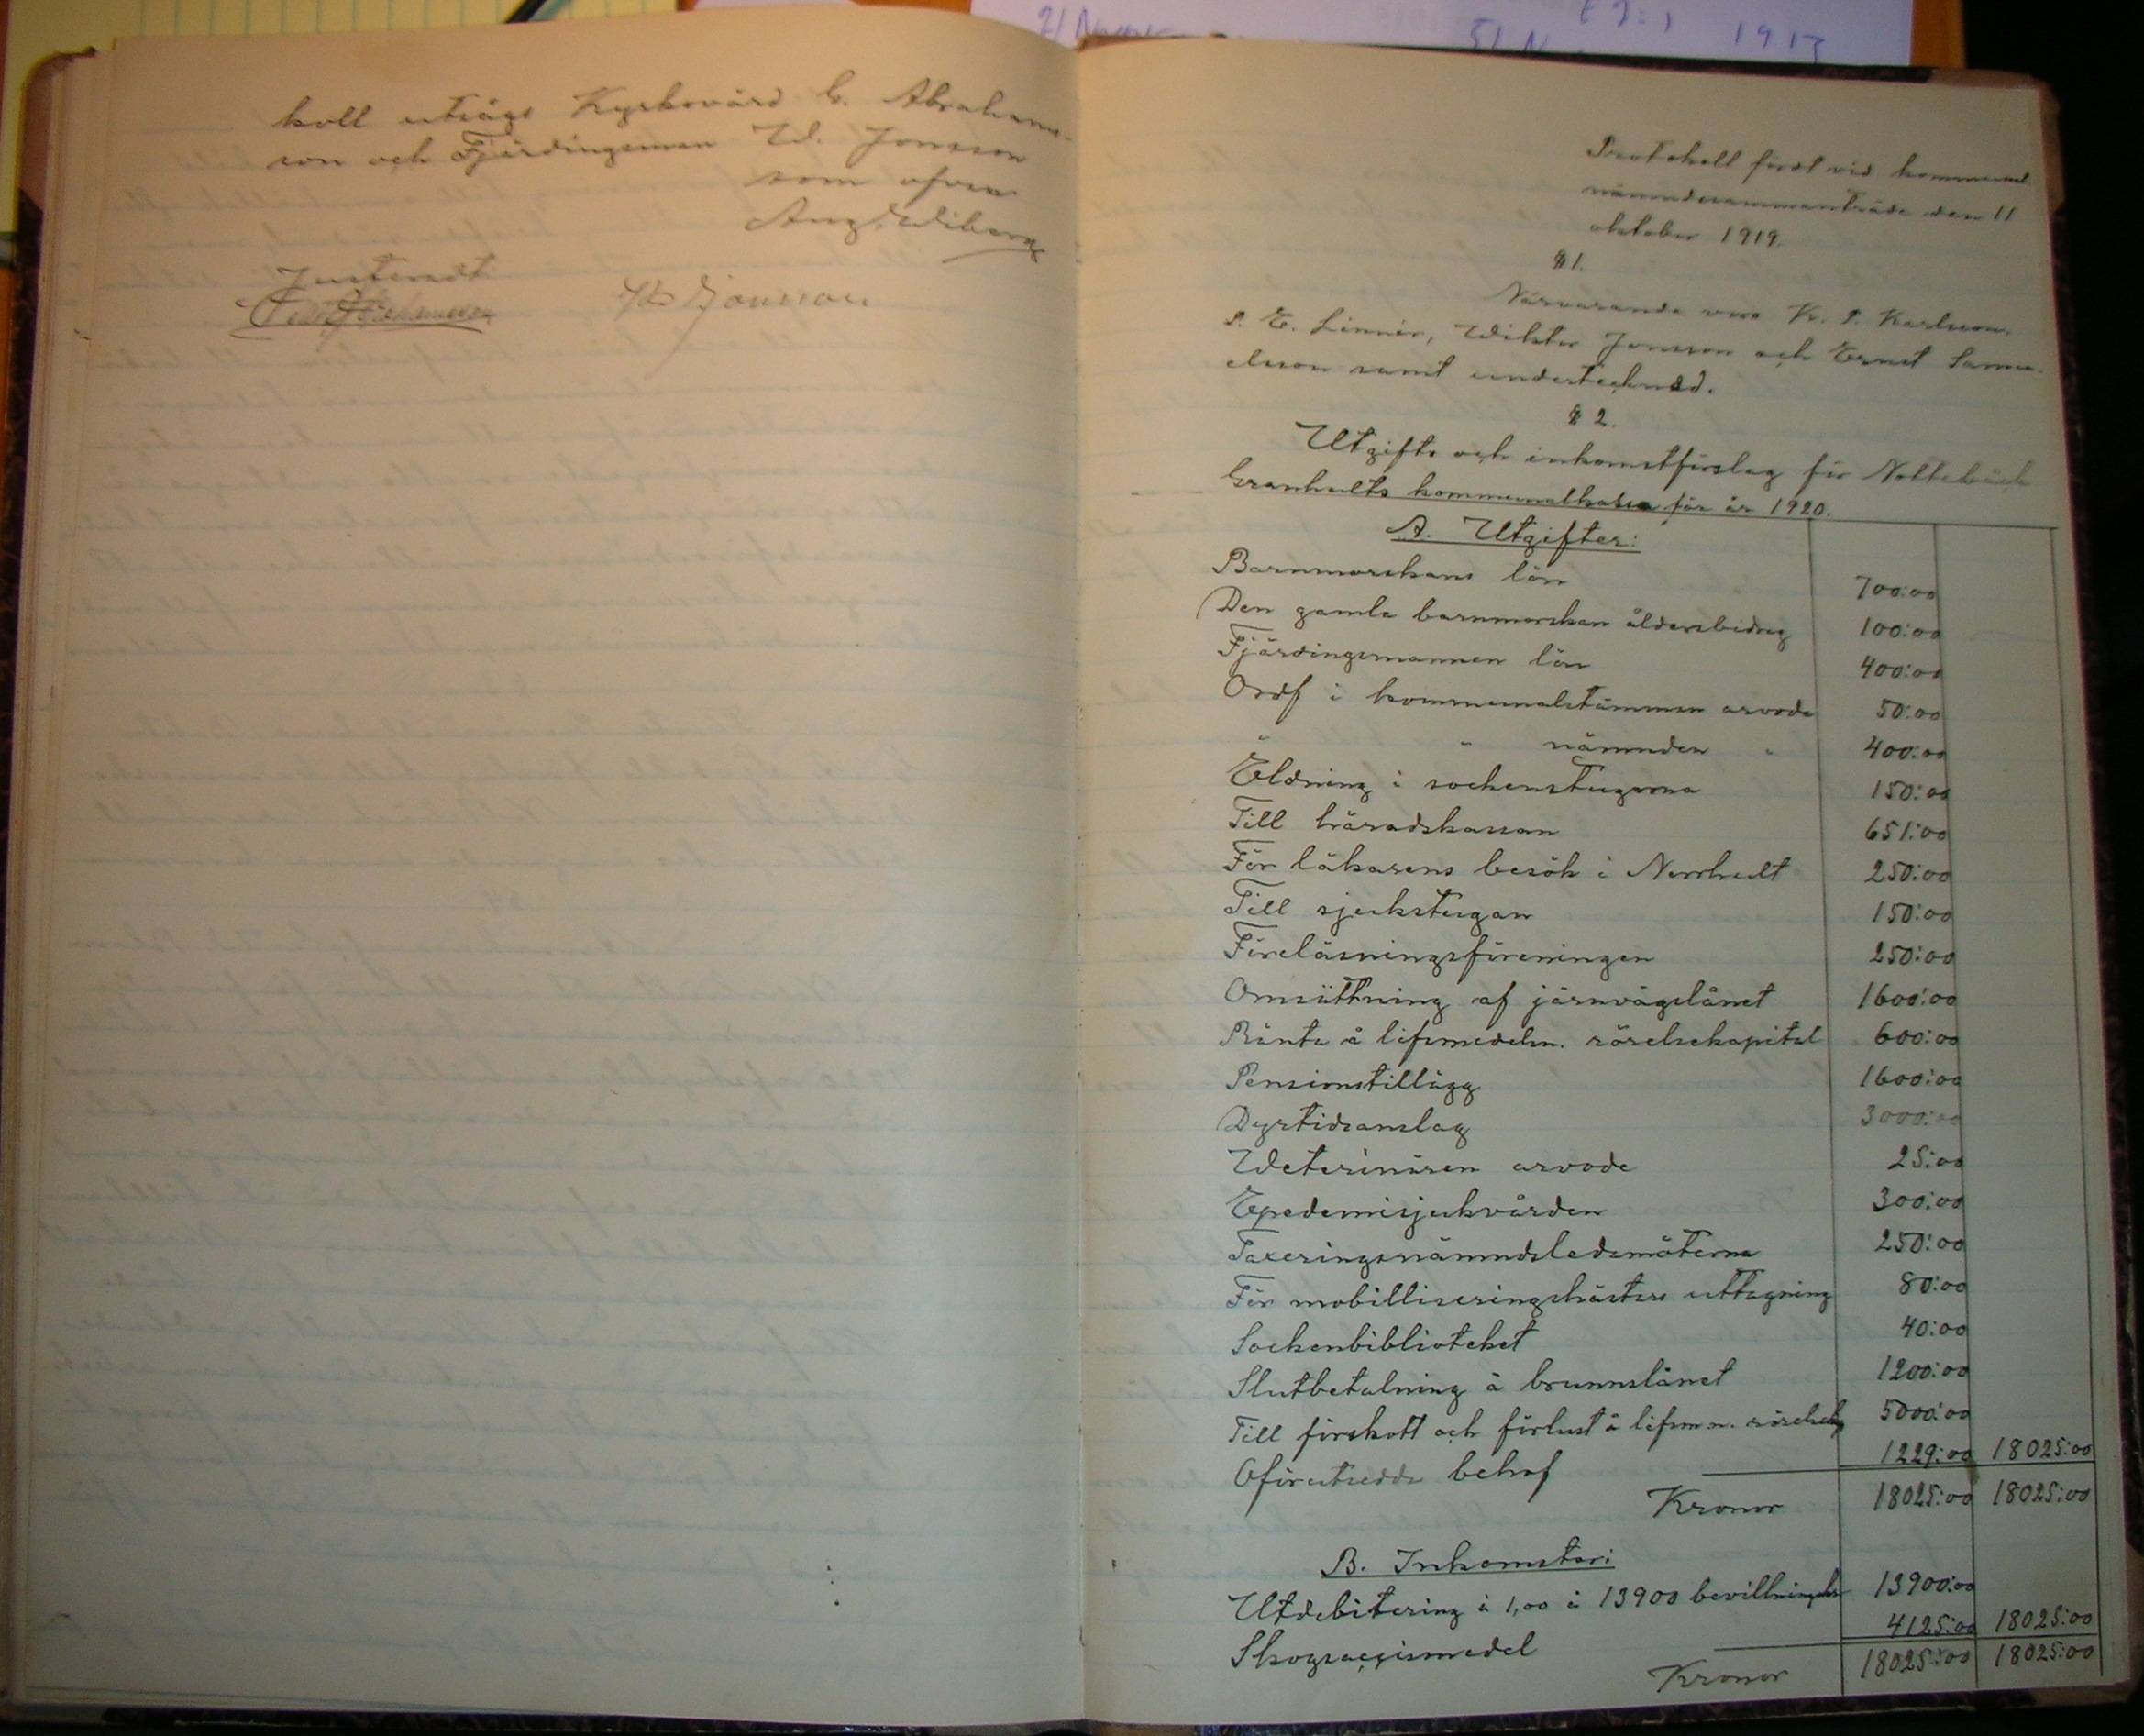 koll utsågs Kyrkovärd G. Abrahams-
son och Fjärdingsman W. Jonsson
som ofvan
Aug. Wiberg
Justeradt:
W Jonsson
Protokoll fördt vid kommunal
nämndsammanträde den 11
oktober 1919.
§ 1.
Närvarande voro K. P. Karlsson.
P. E. Linnér, Wiktor Jonsson och Ernst Samu-
elsson samt undertecknad.
§ 2.
Utgifts och inkomstförslag för Nottebäck
Granhults kommunalkassa för år 1920.
A. Utgifter:
Barnmorskans lön 700:00
Den gamla barnmorskan åldersbidrag 100:00
Fjärdingsmannen lön 400:00
Ordf i kommunalstämman arvode 50:00
" " nämnden " 400:00
Eldning i sockenstugorna 150:00
Till häradskassan 651:00
För läkarens besök i Norrhult 250:00
Till sjukstugan 150:00
Föreläsningsföreningen 250:00
Omsättning af järnvägslånet 1600:00
Ränta å lifsmedelsn. rörelsekapital 600:00
Pensionstillägg 1600:00
Dyrtidsanslag 3000:00
Weterinären arvode 25:00
Epedemisjukvården 300:00
Taxeringsnämndsledamöterna 250:00
För mobilliseringshästars uttagning 80:00
Sockenbiblioteket 40:00
Slutbetalning å brunnslånet 1200:00
Till förskott och förlust å lifsm.n. rörelsek 5000:00
Oförutsedda behof 1229:00 18025:00
Kronor 18025:00 18025:00
B. Inkomster:
Utdebitering à 1,00 å 13900 bevillningskr 13900:00
Skogsaccismedel 4125:00 18025:00
Kronor 18025:00 18025:00